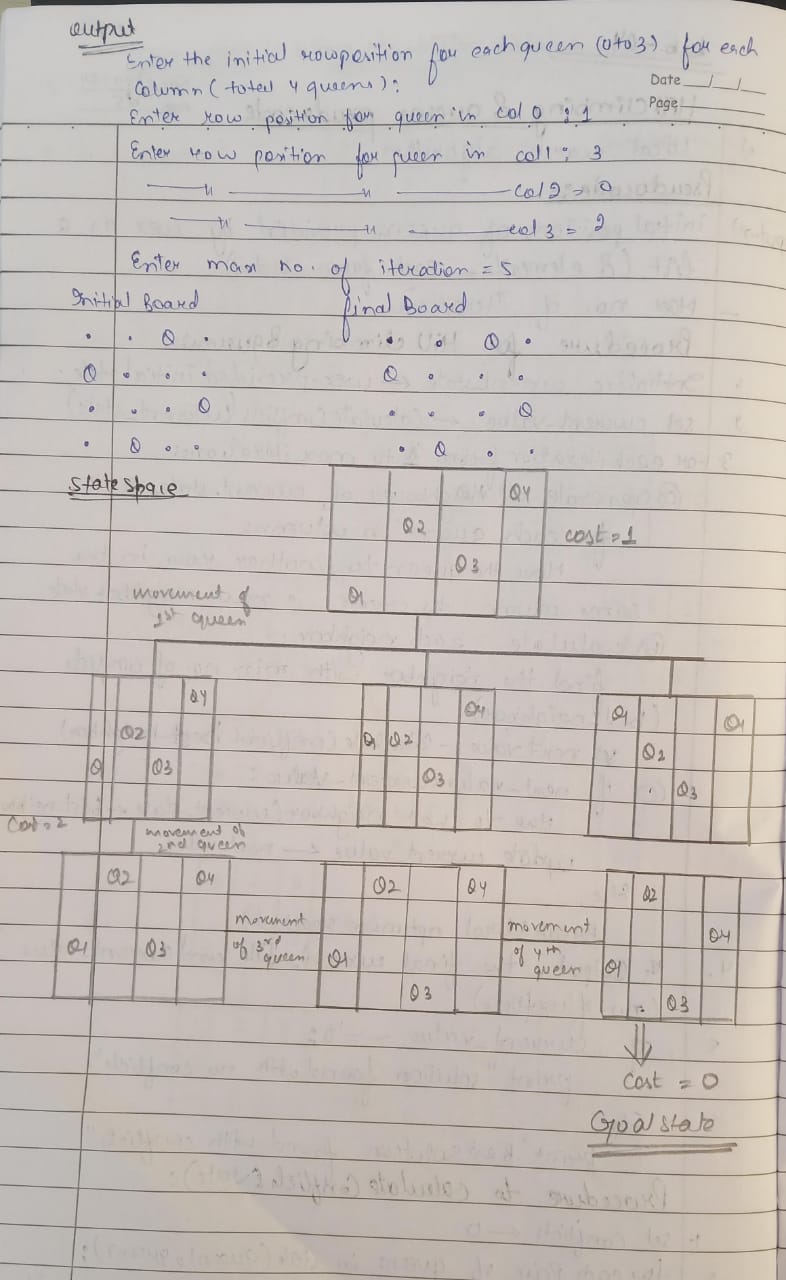 output
Enter the initial rowposition for each queen (0 to 3) for each
column (total 4 queens):
Date
Page
Enter row position for queen in col 0 : 1
Enter row position for queen in col 1 : 3
—— " —— " —— col 2 = 0
—— " —— " —— col 3 = 2
Enter max no. of iteration = 5
Initial Board final Board
. . Q . . . Q .
Q . . . Q . . .
. . . Q . . . Q
. Q . . . Q . .
State Space
Q4
Q2
Q3
Q1
cost = 1
movement of
1st queen
Q4
Q2
Q Q3
Q4
Q1 Q2
Q3
Q1 Q1
Q2
Q3
Cost = 2
movement of
2nd queen
Q2 Q4
Q1 Q3
movement
of 3rd
queen
Q2 Q4
Q1
Q3
movement
of 4th
queen
Q2
Q4
Q1
Q3
Cost = 0
Goal state